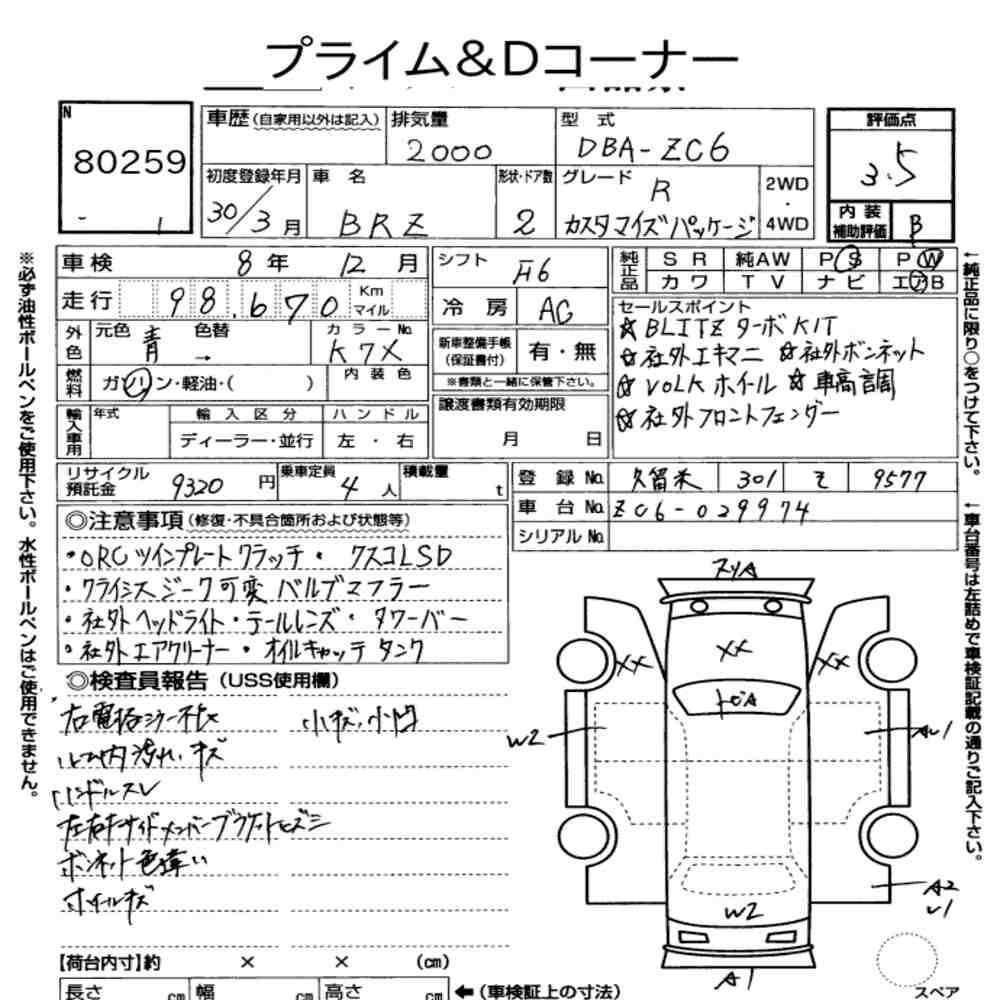 プライム&Dコーナー
N
80259
1
車歴 (自家用以外は記入) 排気量 2000
型式 DBA-ZC6
評価点 3.5
初度登録年月 30/3月
車名 BRZ
形状・ドア数 2
グレード R カスタマイズパッケージ
2WD・4WD
内装補助評価 B
車検 8年 12月
走行 98,670 Km マイル
外色 元色 青 色替 →
カラーNo. K7X
燃料 ガソリン・軽油・( )
内装色
輸入車用 年式 輸入区分 ハンドル
ディーラー・並行 左・右
シフト F6
冷房 AC
新車整備手帳 (保証書付) 有・無
※書類と一緒に保管下さい。
譲渡書類有効期限
月 日
純正品 SR 純AW PS PW
カワ TV ナビ エアB
セールスポイント
☆BLITZ ターボKIT
☆社外エキマニ ☆社外ボンネット
☆VOLKホイール ☆車高調
☆社外フロントフェンダー
リサイクル預託金 9320円
乗車定員 4人
積載量 t
登録No. 久留米 301 そ 9577
車台No. ZC6-029974
シリアルNo.
◎注意事項 (修復・不具合箇所および状態等)
・ORCツインプレートクラッチ・クスコLSD
・クライシスジーク可変バルブマフラー
・社外ヘッドライト・テールレンズ・タワーバー
・社外エアクリーナー・オイルキャッチタンク
◎検査員報告 (USS使用欄)
小キズ、小凹
ルーム内汚れ、キズ
ハンドルスレ
左右サイドメンバーブラケットヒズミ
ボンネット色違い
ホイールキズ
XX
XX
XX
W2
W2
A2
A1
【荷台内寸】約 × × (cm)
長さ cm 幅 cm 高さ cm
←(車検証上の寸法)
スペア
※必ず油性ボールペンをご使用下さい。水性ボールペンはご使用できません。
←純正品に限り○をつけて下さい。
←車台番号は左詰めで車検証記載の通りご記入下さい。